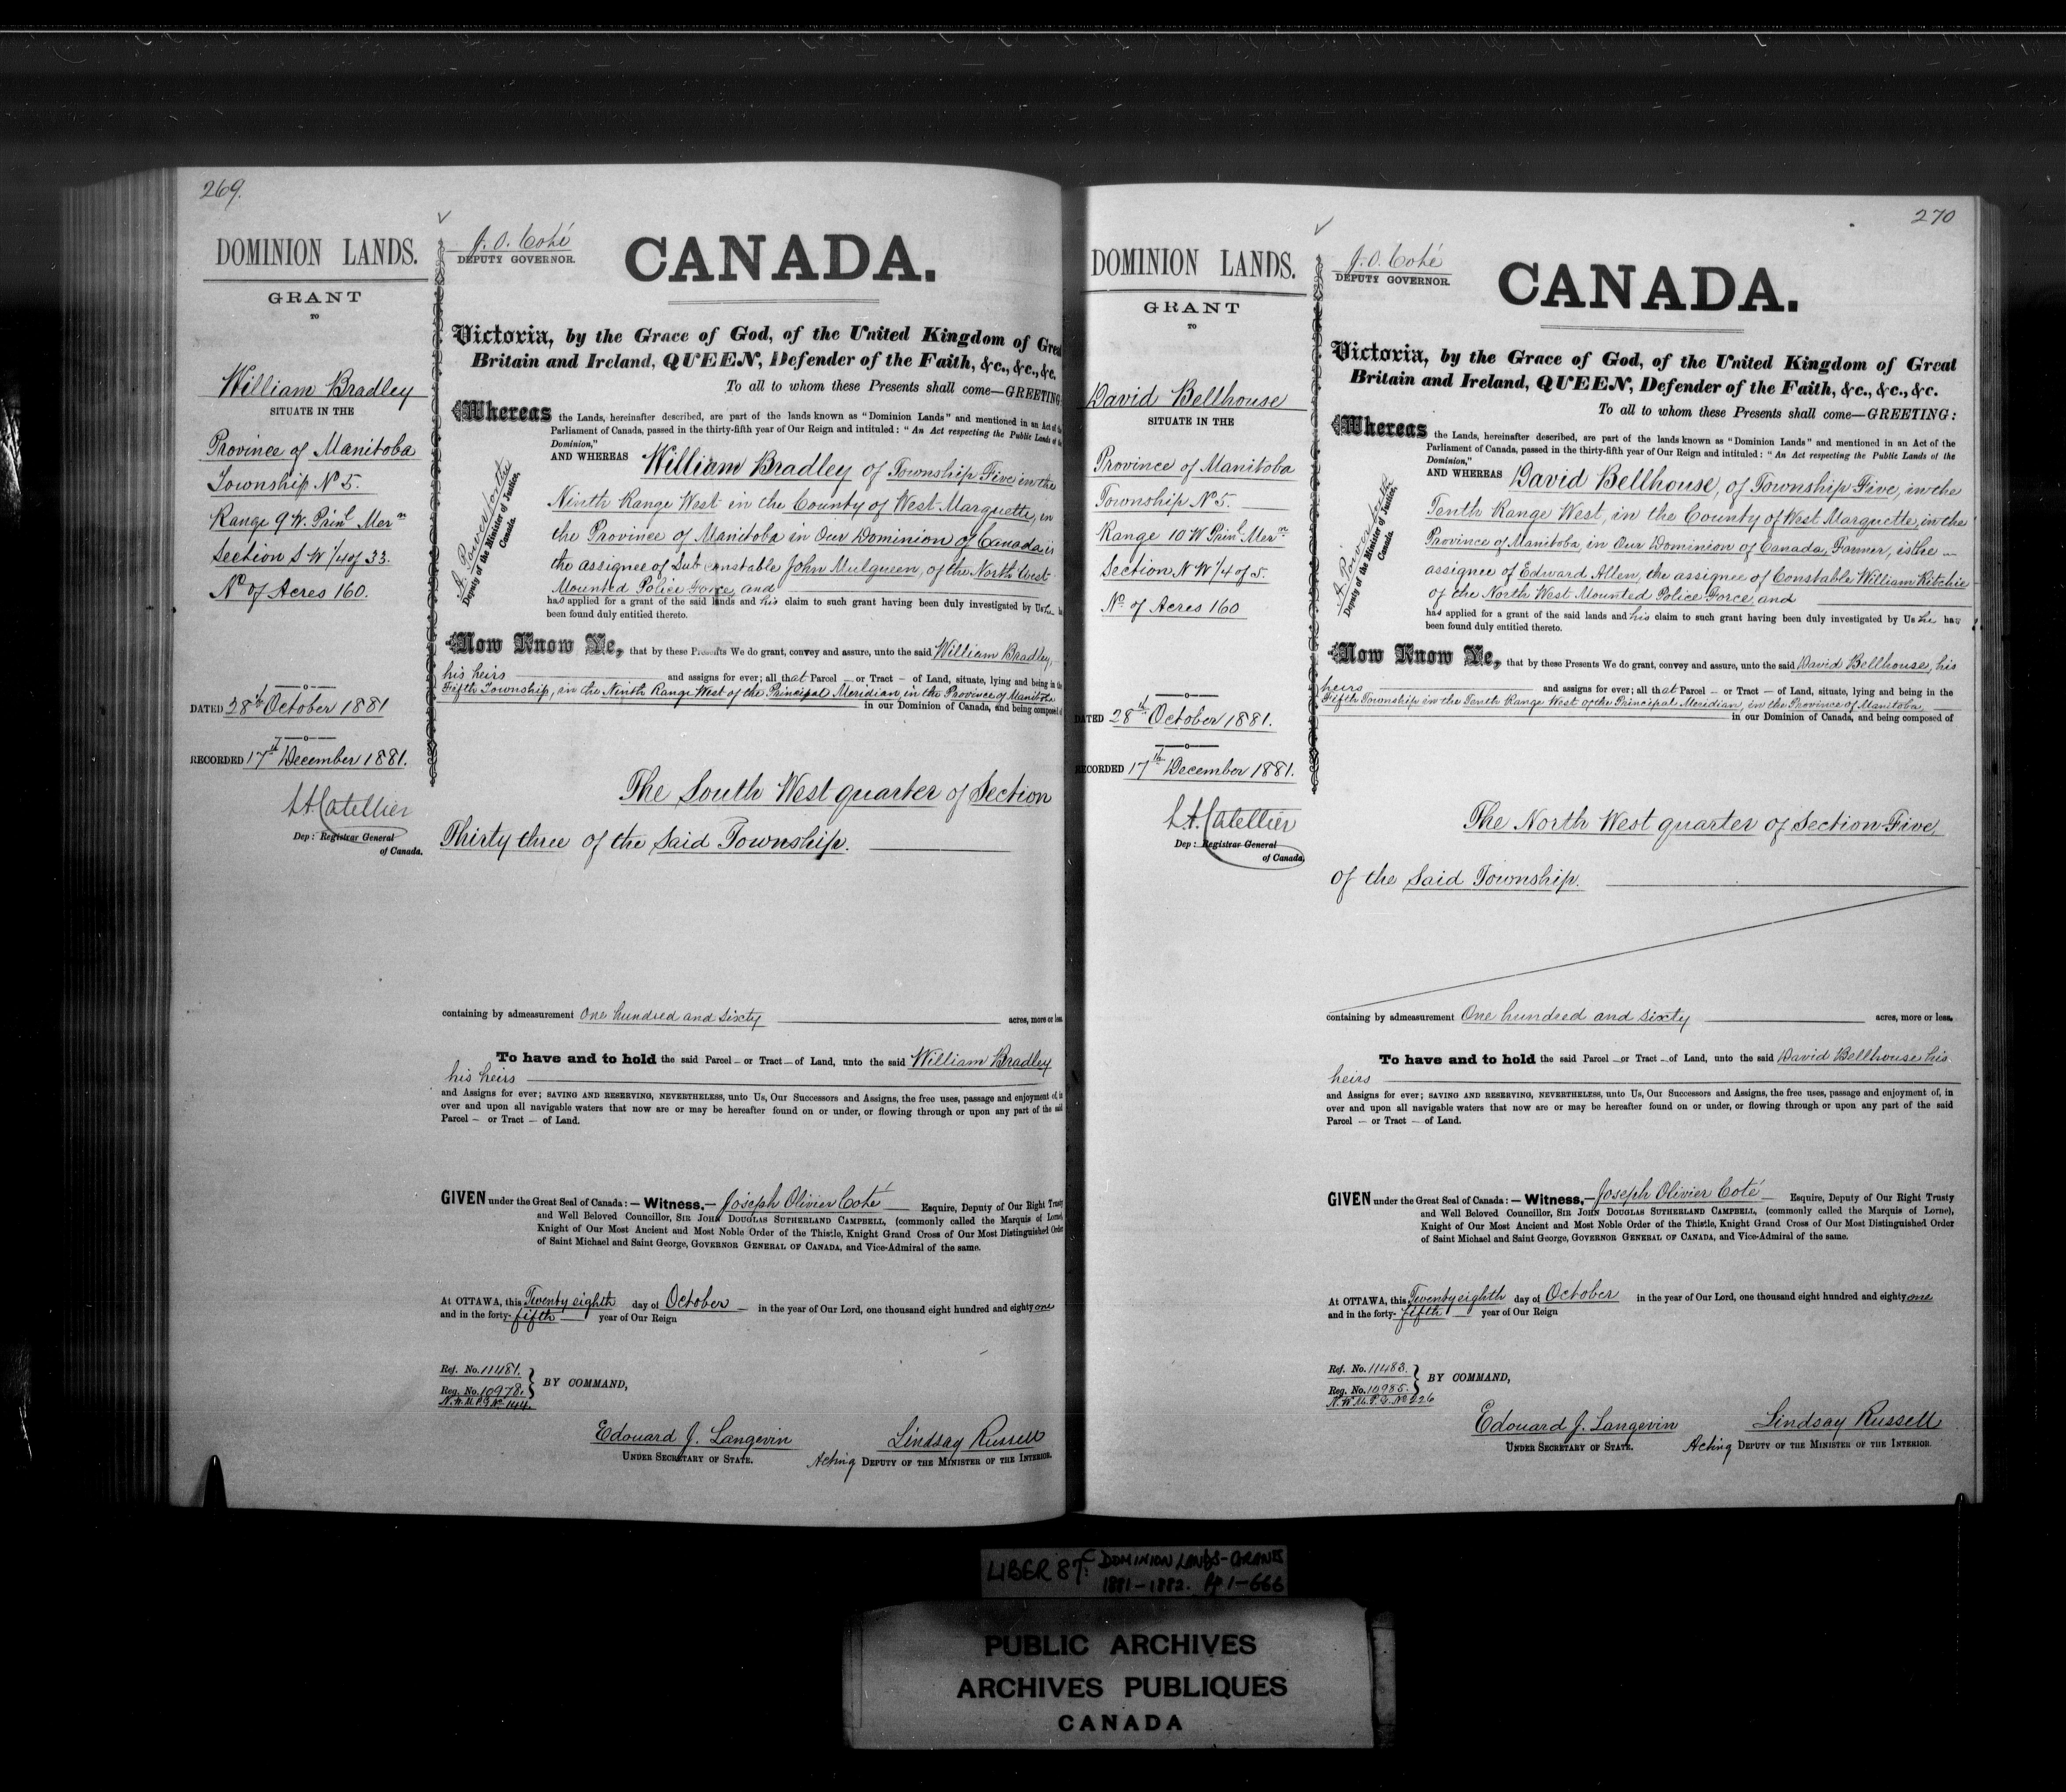 269.
DOMINION LANDS.
GRANT
TO
William Bradley
SITUATE IN THE
Province of Manitoba
Township No 5.
Range 9 W. Prinl Mern
Section S W 1/4 of 33.
No of Acres 160.
DATED 28th October 1881
RECORDED 17th December 1881.
L.A. Catellier
Dep: Registrar General
of Canada.
J. O. Coté
DEPUTY GOVERNOR.
CANADA.
Victoria, by the Grace of God, of the United Kingdom of Great
Britain and Ireland, QUEEN, Defender of the Faith, &c., &c., &c.
To all to whom these Presents shall come—GREETING:
Whereas the Lands, hereinafter described, are part of the lands known as "Dominion Lands" and mentioned in an Act of the
Parliament of Canada, passed in the thirty-fifth year of Our Reign and intituled: "An Act respecting the Public Lands of the
Dominion,"
AND WHEREAS William Bradley of Township Five in the
Ninth Range West in the County of West Marquette, in
the Province of Manitoba in Our Dominion of Canada is
the assignee of Sub Constable John Mulqueen, of the North West
Mounted Police Force, and
has applied for a grant of the said lands and his claim to such grant having been duly investigated by Us he
been found duly entitled thereto.
Deputy of the Minister of Justice,
Canada.
Now Know Ye, that by these Presents We do grant, convey and assure, unto the said William Bradley,
his heirs and assigns for ever; all that Parcel — or Tract — of Land, situate, lying and being in the
Fifth Township, in the Ninth Range West of the Principal Meridian, in the Province of Manitoba
in our Dominion of Canada, and being composed of
The South West quarter of Section
Thirty three of the Said Township.
containing by admeasurement One hundred and sixty acres, more or less.
To have and to hold the said Parcel — or Tract — of Land, unto the said William Bradley
his heirs
and Assigns for ever; SAVING AND RESERVING, NEVERTHELESS, unto Us, Our Successors and Assigns, the free uses, passage and enjoyment of, in
over and upon all navigable waters that now are or may be hereafter found on or under, or flowing through or upon any part of the said
Parcel — or Tract — of Land.
GIVEN under the Great Seal of Canada: — Witness,— Joseph Olivier Coté — Esquire, Deputy of Our Right Trusty
and Well Beloved Councillor, SIR JOHN DOUGLAS SUTHERLAND CAMPBELL, (commonly called the Marquis of Lorne),
Knight of Our Most Ancient and Most Noble Order of the Thistle, Knight Grand Cross of Our Most Distinguished Order
of Saint Michael and Saint George, GOVERNOR GENERAL OF CANADA, and Vice-Admiral of the same.
At OTTAWA, this Twenty eighth day of October — in the year of Our Lord, one thousand eight hundred and eighty one
and in the forty-fifth — year of Our Reign
Ref. No. 11481.
Reg. No. 10978.
N.W.M.P.G No 144.
BY COMMAND,
Edouard J. Langevin
UNDER SECRETARY OF STATE.
Lindsay Russell
Acting DEPUTY OF THE MINISTER OF THE INTERIOR.
270
DOMINION LANDS.
GRANT
TO
David Bellhouse
SITUATE IN THE
Province of Manitoba
Township No 5.
Range 10 W Prinl Mern
Section N W 1/4 of 5.
No of Acres 160
DATED 28th October 1881.
RECORDED 17th December 1881.
L.A. Catellier
Dep: Registrar General
of Canada.
J. O. Coté
DEPUTY GOVERNOR.
CANADA.
Victoria, by the Grace of God, of the United Kingdom of Great
Britain and Ireland, QUEEN, Defender of the Faith, &c., &c., &c.
To all to whom these Presents shall come—GREETING:
Whereas the Lands, hereinafter described, are part of the lands known as "Dominion Lands" and mentioned in an Act of the
Parliament of Canada, passed in the thirty-fifth year of Our Reign and intituled: "An Act respecting the Public Lands of the
Dominion,"
AND WHEREAS David Bellhouse, of Township Five, in the
Tenth Range West, in the County of West Marquette, in the
Province of Manitoba, in Our Dominion of Canada, Farmer, is the —
assignee of Edward Allen, the assignee of Constable William Ritchie
of the North West Mounted Police Force, and
has applied for a grant of the said lands and his claim to such grant having been duly investigated by Us he has
been found duly entitled thereto.
Deputy of the Minister of Justice,
Canada.
Now Know Ye, that by these Presents We do grant, convey and assure, unto the said David Bellhouse, his
heirs and assigns for ever; all that Parcel — or Tract — of Land, situate, lying and being in the
Fifth Township in the Tenth Range West of the Principal Meridian, in the Province of Manitoba,
in our Dominion of Canada, and being composed of
The North West quarter of Section Five,
of the Said Township.
containing by admeasurement One hundred and sixty acres, more or less.
To have and to hold the said Parcel — or Tract — of Land, unto the said David Bellhouse his
heirs
and Assigns for ever; SAVING AND RESERVING, NEVERTHELESS, unto Us, Our Successors and Assigns, the free uses, passage and enjoyment of, in
over and upon all navigable waters that now are or may be hereafter found on or under, or flowing through or upon any part of the said
Parcel — or Tract — of Land.
GIVEN under the Great Seal of Canada: — Witness,— Joseph Olivier Coté — Esquire, Deputy of Our Right Trusty
and Well Beloved Councillor, SIR JOHN DOUGLAS SUTHERLAND CAMPBELL, (commonly called the Marquis of Lorne),
Knight of Our Most Ancient and Most Noble Order of the Thistle, Knight Grand Cross of Our Most Distinguished Order
of Saint Michael and Saint George, GOVERNOR GENERAL OF CANADA, and Vice-Admiral of the same.
At OTTAWA, this Twenty eighth day of October in the year of Our Lord, one thousand eight hundred and eighty one
and in the forty-fifth — year of Our Reign
Ref. No. 11483.
Reg. No. 10985.
N.W.M.P.G. No 226
BY COMMAND,
Edouard J. Langevin
UNDER SECRETARY OF STATE.
Lindsay Russell
Acting DEPUTY OF THE MINISTER OF THE INTERIOR.
LIBER 87C: DOMINION LANDS-GRANTS
1881-1882. Pp 1-666
PUBLIC ARCHIVES
ARCHIVES PUBLIQUES
CANADA